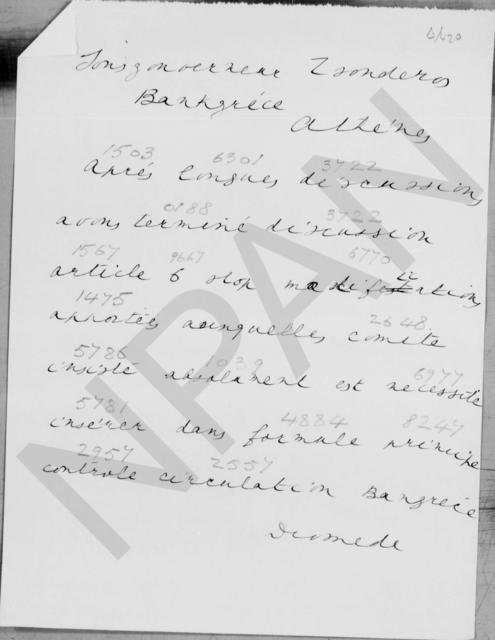 Δ/620
Sousgouverneur Tsouderos
Bankgrèce
Athènes
1503 6301 3722
après longues discussions
0188 3722
avons terminé discussion
1567 9667 6770
article 6 stop modifications
1475 2648
aportées auxquelles comité
5786 1039 6977
insiste absolument est necessité
5781 4884 8247
insérer dans formule principe
2957 2557
controle circulation Bangrèce
Diomede
NPAN